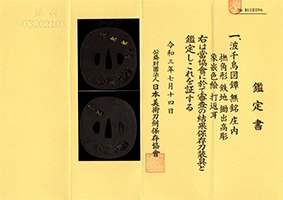 鑑定書
一、波千鳥図鐔 無銘 庄内
撫角形 鉄地 鋤出高彫
象嵌色絵 打返耳
右は當協會に於て審査の結果保存刀装具と
鑑定しこれを証する
令和三年七月十四日
公益財團法人日本美術刀剣保存協會